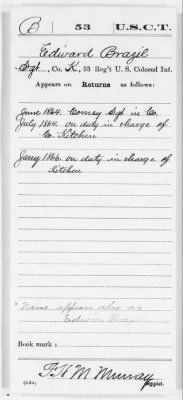 B 53 U.S.C.T.
Edward Brazil
Sgt., Co. K, 53 Reg't U. S. Colored Inf.
Appears on Returns as follows:
June 1864. Comsy Sgt in Co.
July 1864. on duty in charge of
Co. Kitchen
Jany 1866. on duty in charge of
Kitchen
Name appears also as
Edwin Brazil
Book mark:
F. H. M. Murray
(546) Copyist.